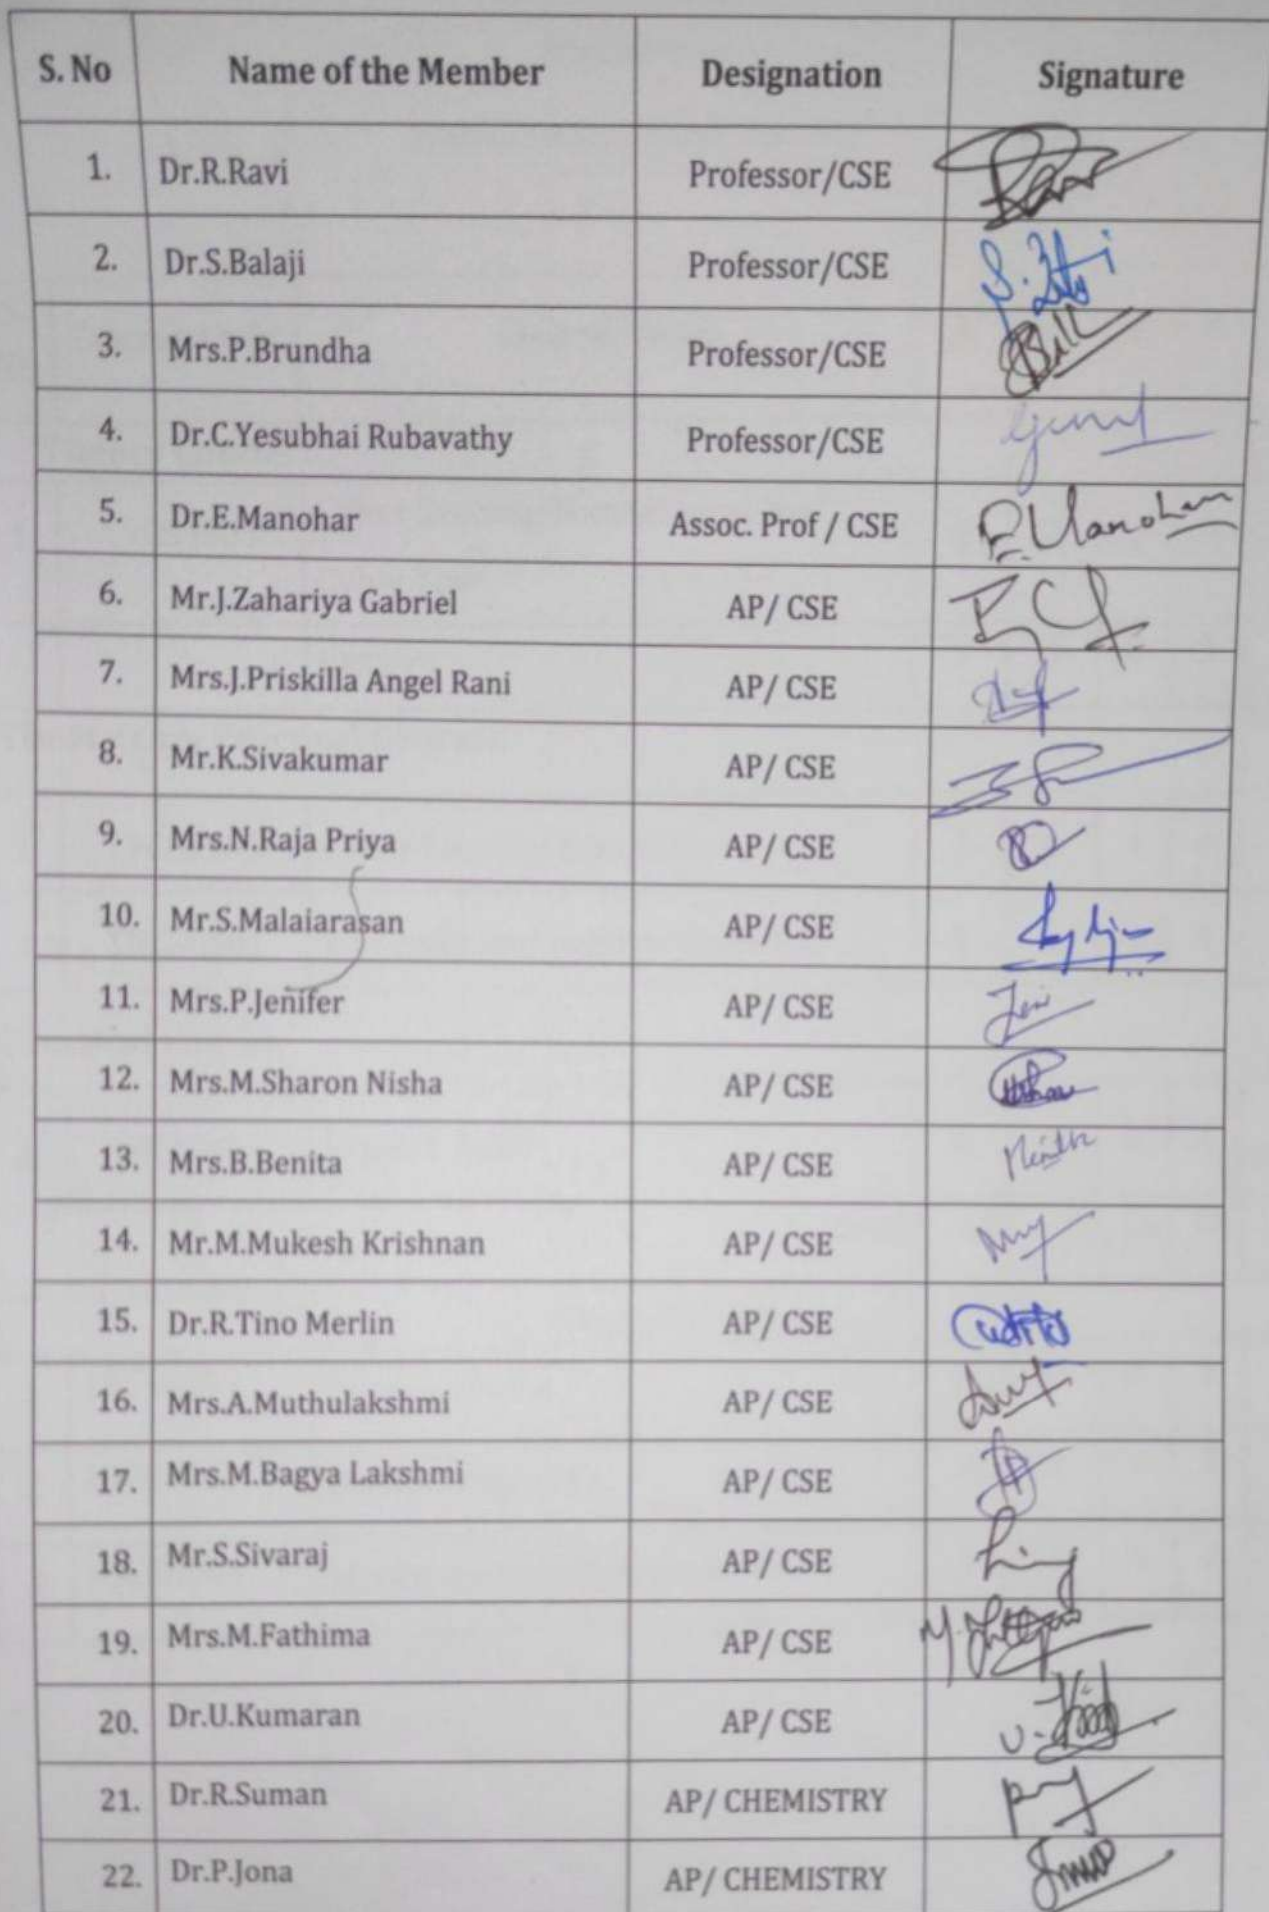 S. No Name of the Member Designation Signature
1. Dr.R.Ravi Professor/CSE
2. Dr.S.Balaji Professor/CSE
3. Mrs.P.Brundha Professor/CSE
4. Dr.C.Yesubhai Rubavathy Professor/CSE
5. Dr.E.Manohar Assoc. Prof / CSE
6. Mr.J.Zahariya Gabriel AP/ CSE
7. Mrs.J.Priskilla Angel Rani AP/ CSE
8. Mr.K.Sivakumar AP/ CSE
9. Mrs.N.Raja Priya AP/ CSE
10. Mr.S.Malaiarasan AP/ CSE
11. Mrs.P.Jenifer AP/ CSE
12. Mrs.M.Sharon Nisha AP/ CSE
13. Mrs.B.Benita AP/ CSE
14. Mr.M.Mukesh Krishnan AP/ CSE
15. Dr.R.Tino Merlin AP/ CSE
16. Mrs.A.Muthulakshmi AP/ CSE
17. Mrs.M.Bagya Lakshmi AP/ CSE
18. Mr.S.Sivaraj AP/ CSE
19. Mrs.M.Fathima AP/ CSE
20. Dr.U.Kumaran AP/ CSE
21. Dr.R.Suman AP/ CHEMISTRY
22. Dr.P.Jona AP/ CHEMISTRY